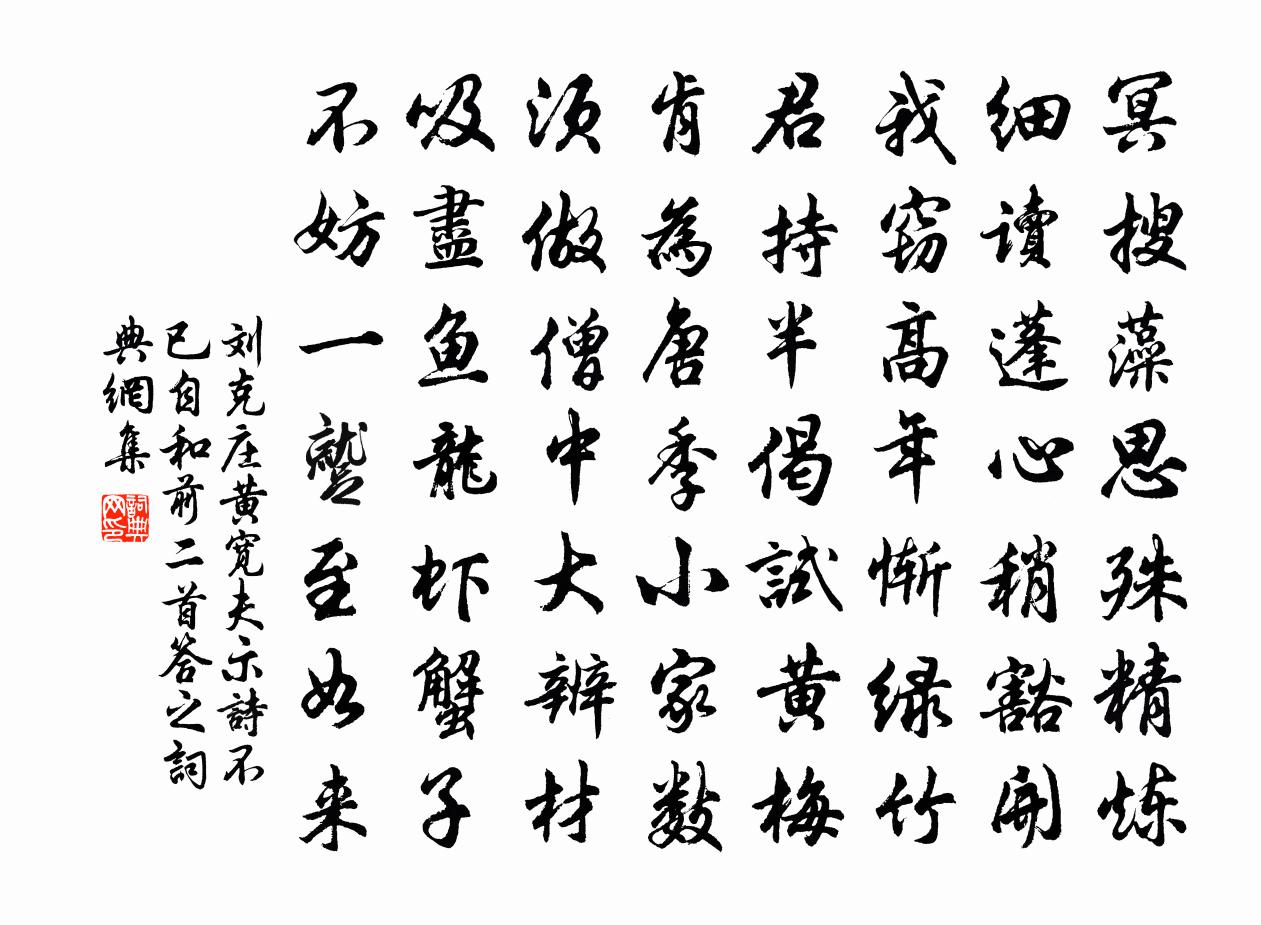 冥搜藻思殊精炼
细讀蓬心稍豁開
我窃髙年惭绿竹
君持半偈試黄梅
肯為唐季小家数
须做僧中大辨材
吸盡鱼龍虾蟹子
不妨一蹵至如来
刘克庄黄寛夫示詩不
已自和前二首答之詞
典網集
詞典
网印